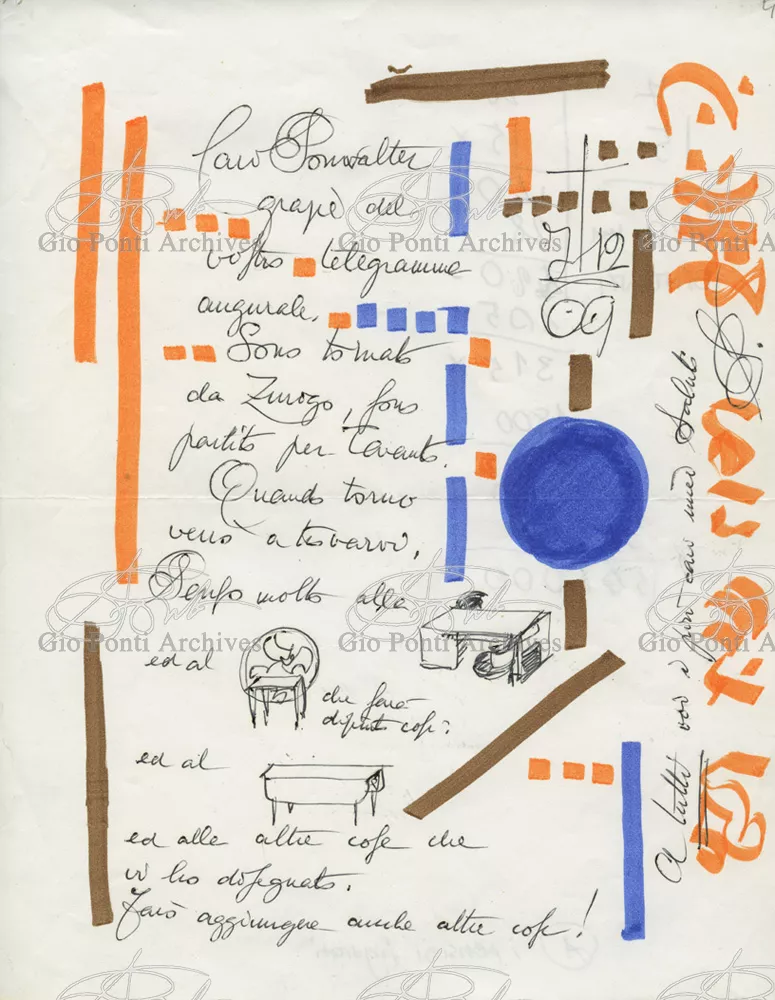 Caro Ponwalter
grazie del
vostro telegramma
augurale,
Sono tornato
da Zurogo, sono
partito per Taranto.
Quando torno
verrò a trovarvi,
Penso molto alle
ed al
che farà
dipinto così:
ed al
ed alle altre cose che
vi ho disegnato.
Farò aggiungere anche altre cose!
7 12
69
A tutti voi i più cari miei Saluti
Gio Ponti Archives
Gio Ponti Archives
Gio Ponti Archives
Gio Ponti Archives
Gio Ponti Archives
Gio Ponti Archives